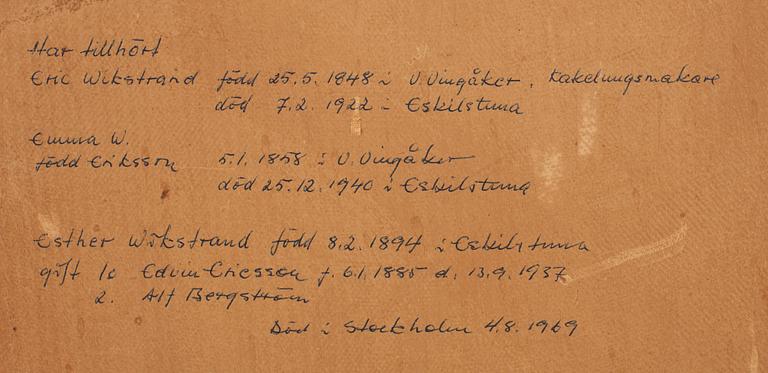 Har tillhört
Eric Wikstrand född 25.5.1848 i V. Vingåker, kakelungsmakare
död 7.2.1922 i Eskilstuna
Emma W.
född Eriksson 5.1.1858 i V. Vingåker
död 25.12.1940 i Eskilstuna
Esther Wikstrand född 8.2.1894 i Eskilstuna
gift 1o Edvin Ericsson f. 6.1.1885 d. 13.9.1937
2. Alf Bergström
Död i Stockholm 4.8.1969